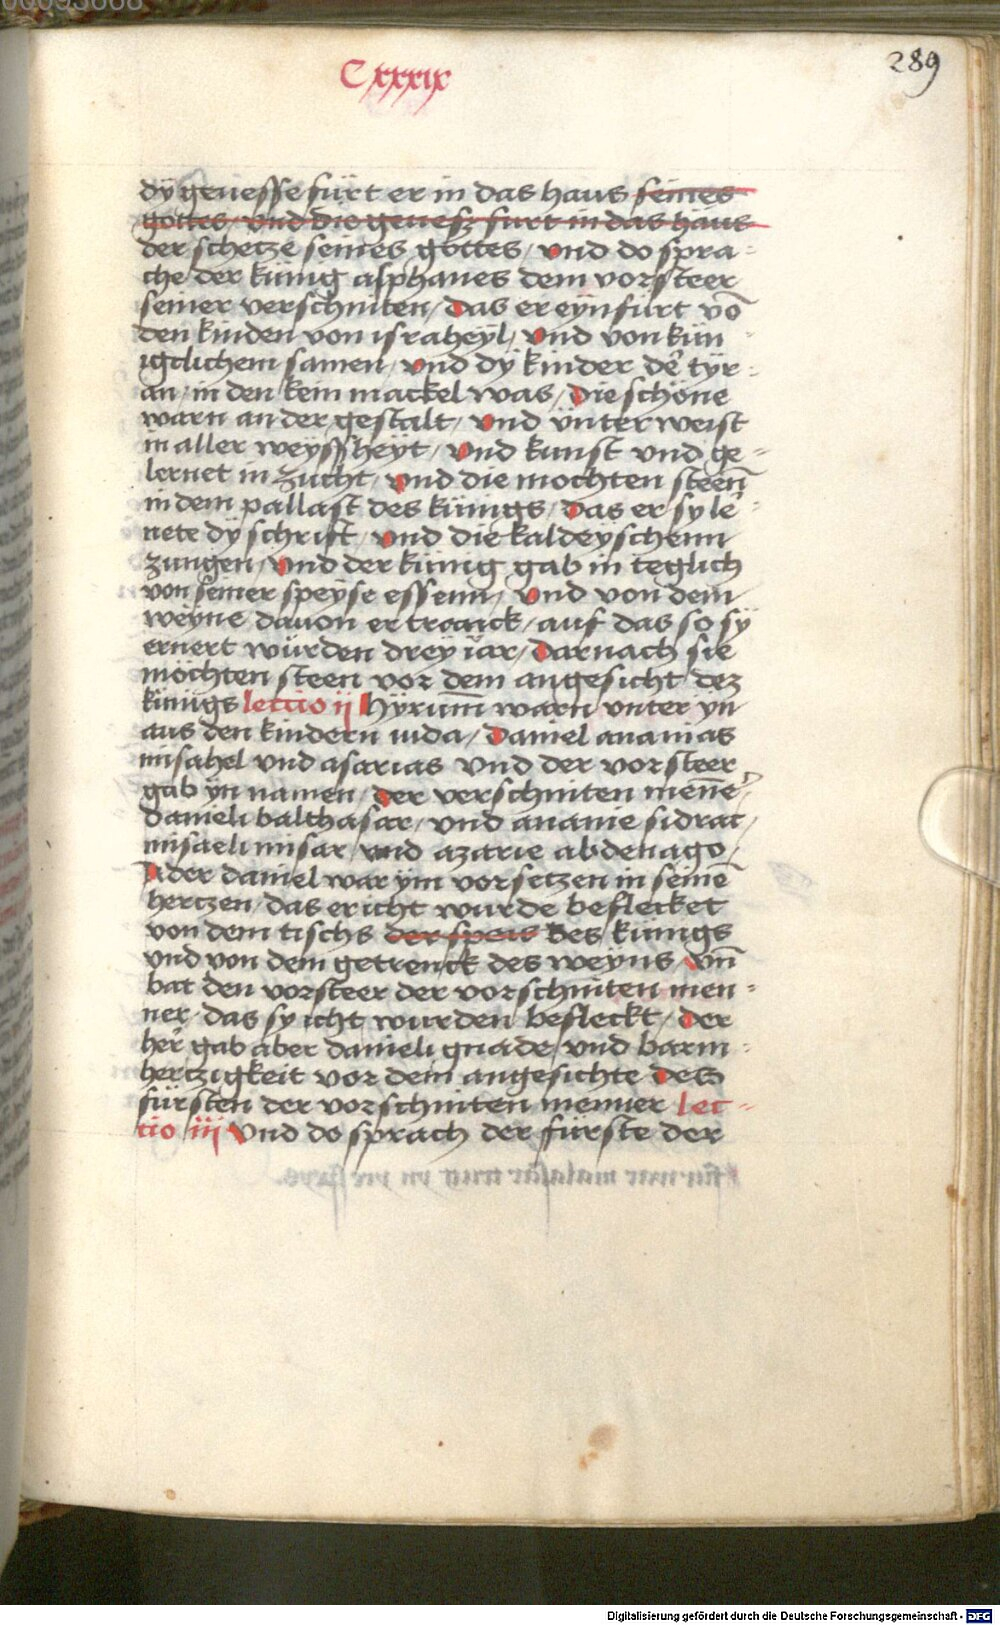 00093668
Cxxxix
289
dÿ geuesse fürt er in das haus seines
gottes / vnd die geuesz furt in das haus
der schetze seines gottes / vnd do spra-
che der kunig asphanes dem vorsteer
seiner verschniten / Das er eÿnfurt vō
den kinden von israheÿl / vnd von kün-
igclichem samen / vnd dÿ kinder de᷑ tÿr-
an / in den kein mackel was / Die schöne
warn an der gestalt / vnd ünter weist
in aller weÿssheÿt / vnd kunst vnd ge-
lernet in zucht / vnd die mochten steen̄
in dem pallast des künigs / Das er sy le᷑-
nete dÿ schrift / vnd die kaldeÿschenn
zungen / vnd der künig gab in teglich
von seiner speÿse essenn / vnd von dem
weÿne dauon er tranck / auf das so sÿ
ernert würden dreÿ iar / Darnach sie
möchten steen vor dem angesicht dez
künigs lectio ij Hÿrum̄ warn vnter yn
aus den kindern iuda / Daniel ananias
misahel vnd asarias vnd der vorsteer
gab ÿn namen / der verschniten men̄e᷑ /
danieli balthasar / vnd ananie sidrac /
misaeli misar vnd azarie abdenago /
Ader daniel war ÿm vorsetzen in seinē
hertzen / das er icht wurde beflecket
von dem tischs der speis des kunigs
vnd von dem getrenck des weyns / vn̄
bat den vorsteer der vorschniten men-
ner / das sy icht wurden befleckt / der
her᷑ gab aber danieli gnade / vnd barm-
hertzigkeit vor dem angesichte des
fürsten der vorschniten menner lec-
tio iij Vnd do sprach der fürste der
Digitalisierung gefördert durch die Deutsche Forschungsgemeinschaft - DFG